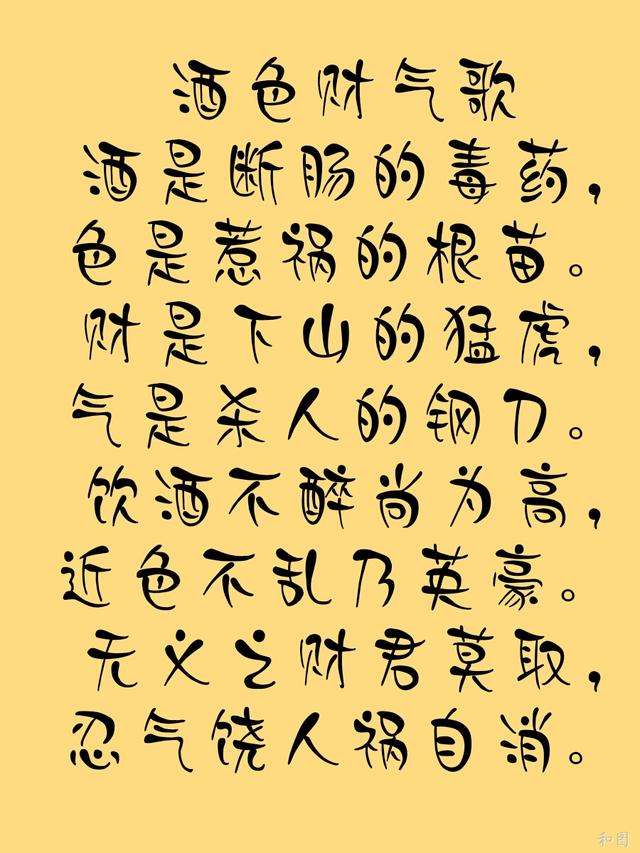 酒色财气歌
酒是断肠的毒药，
色是惹祸的根苗。
财是下山的猛虎，
气是杀人的钢刀。
饮酒不醉尚为高，
近色不乱乃英豪。
无义之财君莫取，
忍气饶人祸自消。
和图